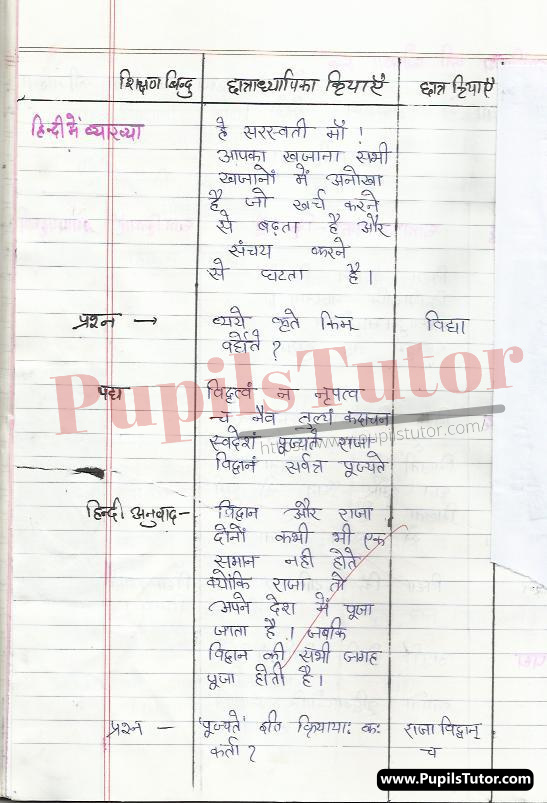 शिक्षण बिन्दु छात्राध्यापिका क्रियाएँ छात्र क्रियाएँ
हिन्दी में व्याख्या हे सरस्वती माँ !
आपका खजाना सभी
खजानों में अनोखा
है जो खर्च करने
से बढ़ता है और
संचय करने
से घटता है ।
प्रश्न → व्यये कृते किम् विद्या
वर्द्धते ?
पद्य विद्वत्वं न नृपत्व
च नैव तुल्यं कदाचन
स्वदेशं पूज्यते राजा
विद्वानं सर्वत्र पूज्यते
हिन्दी अनुवाद- विद्वान और राजा
दोनों कभी भी एक
समान नही होते
क्योंकि राजा तो
अपने देश में पूजा
जाता है । जबकि
विद्वान की सभी जगह
पूजा होती है ।
प्रश्न - 'पूज्यते' इति क्रियायाः कः राजा विद्वान्
कर्ता ? च
PupilsTutor
http://www.pupilstutor.com/
www.PupilsTutor.com